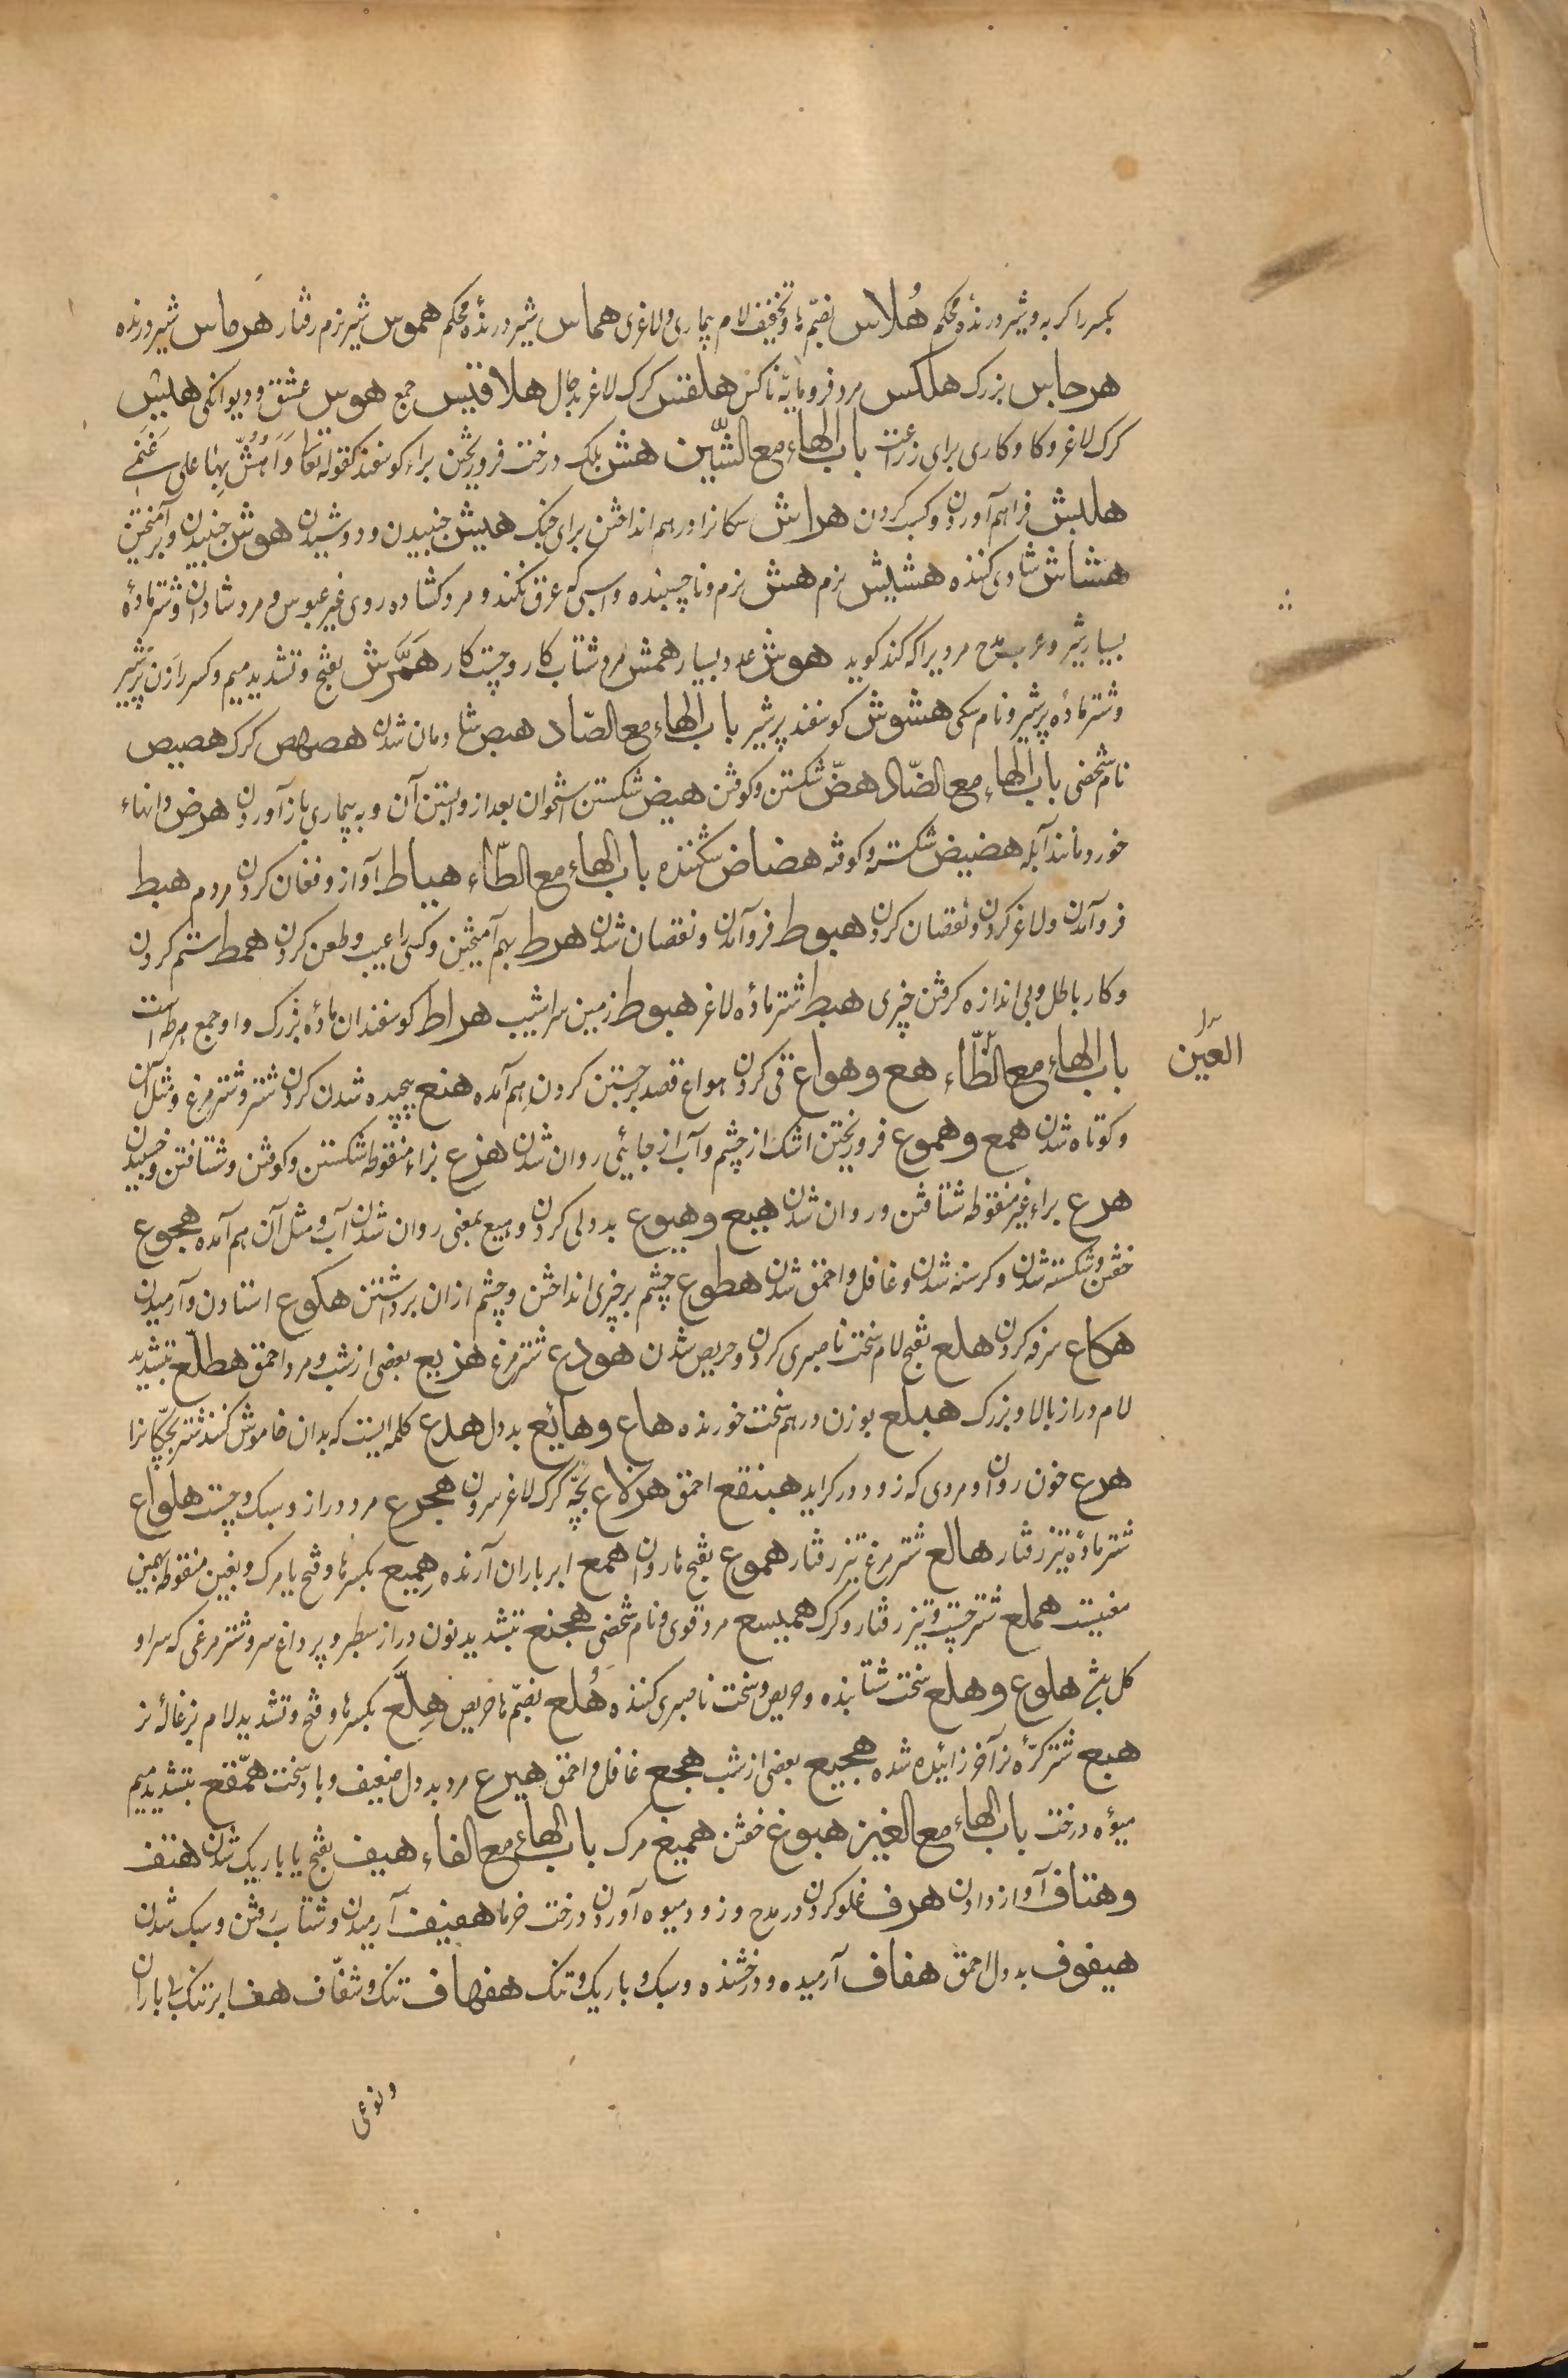 بکسر را کربه و شیر درندهٔ محکم هُلاس بضمّ ها و تخفیف لام بیماری و لاغری هماس شیر درندهٔ محکم هموس شیر نرم رفتار هرماس شیر درنده
هرجاس بزرک هلکس مرد فرومایهٔ ناکس هلقس کرک لاغر بدحال هلاقیس جمع هوس عشق و دیوانکی هلیس
کرک لاغر و کا و کاری برای زراعت باب الهاء مع الشّین هش بلک درخت فرو ریختن براء کوسفند کقوله تعا وَاَهُشُّ بِهَا علی غَنَمی
هلبش فراهم آوردن و کسب کردن هراش سکانرا در هم انداختن برای جنک هیش جنبیدن و دوشیدن هوش جنبیدن و برآمیختن
هشاش شادی کننده هشیش نرم هش نرم و ناچسبنده و اسبی که عرق نکند و مرد کشاده روی غیر عبوس و مرد شادان و شتر مادهٔ
بسیار شیر و عرب مدح مردیرا که کند کوید هوش عدد بسیار همش مرد شتاب کار و چست کار همَّرش بفتح و تشدید میم و کسر را زن پر شیر
و شتر مادهٔ پر شیر و نام سکی هشوش کوسفند پر شیر باب الهاء مع الصّاد هبص شادمان شدن هصهص کرک هصیص
نام شخصی باب الهاء مع الضّاد هضّ شکستن و کوفتن هیض شکستن استخوان بعد از وابستن آن و به بیماری باز آوردن هرض دانهاء
خورد مانند آبله هضیض شکسته و کوفته هضاض شکننده باب الهاء مع الطّاء هیاط آواز و فغان کردن مردم هبط
فرو آمدن و لاغر کردن و نقصان کردن هبوط فرو آمدن و نقصان شدن هرط بهم آمیختن و کسی را عیب و طعن کردن همط ستم کردن
و کار باطل و بی اندازه کرفتن چیزی هبط شتر مادهٔ لاغر هبوط زمین سراشیب هراط کوسفندان مادهٔ بزرک و او جمع هرطه است
باب الهاء مع الظّاء هع و هواع قی کردن هواع قصد برجستن کردن هم آمده هنع پیچیده شدن کردن شتر و شتر مرغ و مثل آن
العین
و کوتاه شدن همع و هموع فرو ریختن اشک از چشم و آب از جائی روان شدن هزع بزاء منقوطه شکستن و کوفتن و شتافتن و خسبیدن
هرع براء غیر منقوطه شتافتن و روان شدن هیع و هیوع بددلی کردن و هیع بمعنی روان شدن آب و مثل آن هم آمده هجوع
خفتن و شکسته شدن و کرسنه شدن و غافل و احمق شدن هطوع چشم بر چیزی انداختن و چشم از ان برداشتن هکوع استادن و آرمیدن
هکاع سرفه کردن هلع بفتح لام سخت ناصبری کردن و حریص شدن هودع شتر مرغ هزیع بعضی از شب و مرد احمق هطلع بتشدید
لام دراز بالا و بزرک هبلع بوزن درهم سخت خورنده هاع و هایع بددل هدع کلمه ایست که بدان خاموش کنند شتر بچکانرا
هرع خون روان و مردی که زود در کراید هبنقع احمق هرلاع بچّه کرک لاغر سرون هجرع مرد دراز و سبک و چست هلواع
شتر مادهٔ تیز رفتار هالع شتر مرغ تیز رفتار هموع بفتح ها روان همع ابر باران آرنده هِمیع بکسر ها و فتح یا مرک و بغین منقوطه بهمین
معنیست هملع شتر چست و تیز رفتار و کرک همیسع مرد قوی و نام شخصی هجنع بتشدید نون دراز سطبر و پر داغ سر و شتر مرغی که سر او
کل باشد هلوع و هلع سخت شتابنده و حریص و سخت ناصبری کننده هُلع بضمّ ها حریص هِلَّع بکسر ها و فتح و تشدید لام بزغالهٔ نر
هبع شتر کرّهٔ نر آخر زائیده شده هجیع بعضی از شب هجع غافل و احمق هیرع مرد بددل ضعیف و باد سخت همّقع بتشدید میم
میوهٔ درخت باب الهاء مع الغین هبوغ خفتن همیغ مرک باب الهاء مع الفاء هیف بفتح یا باریک شدن هتف
و هتاف آواز دادن هرف غلو کردن در مدح و زود میوه آوردن درخت خرما هفیف آرمیدن و شتاب رفتن و سبک شدن
هیفوف بددل احمق هفاف آرمیده و درخشنده و سبک و باریک و تنک هفهاف تنک و شفّاف هف ابر تنک بی باران
و نوعی